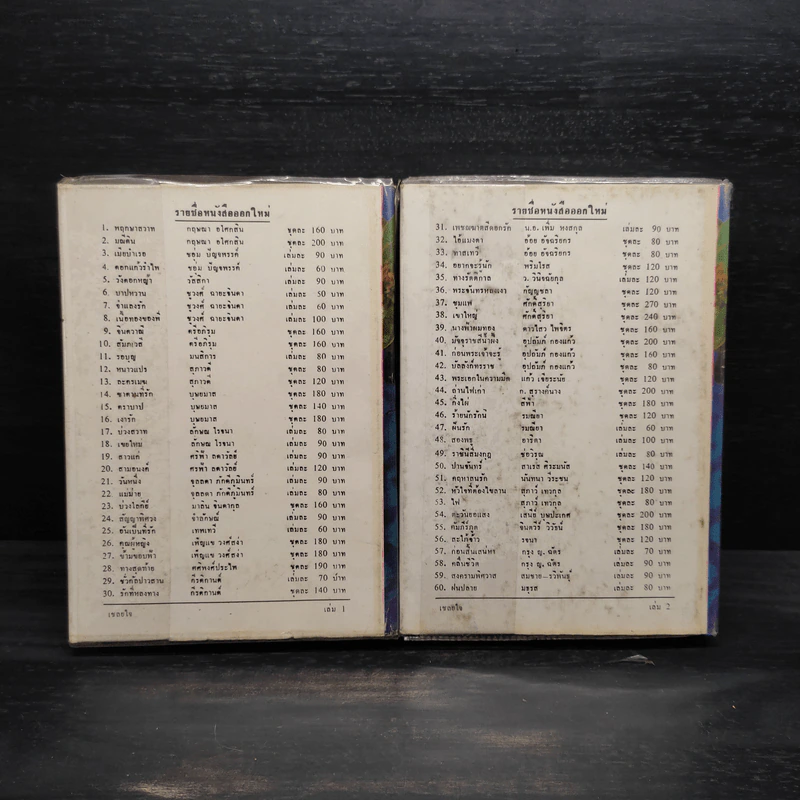 รายชื่อหนังสือออกใหม่
1. พฤกษาสวาท กฤษณา อโศกสิน ชุดละ 160 บาท
2. มณีดิน กฤษณา อโศกสิน ชุดละ 200 บาท
3. เมียบำเรอ ชอุ่ม ปัญจพรรค์ เล่มละ 90 บาท
4. ดอกแก้วรำไพ ชอุ่ม ปัญจพรรค์ เล่มละ 60 บาท
5. วังดอกหญ้า วัสสิกา เล่มละ 90 บาท
6. บาปหวาน ชูวงศ์ ฉายะจินดา เล่มละ 50 บาท
7. จำแลงรัก ชูวงศ์ ฉายะจินดา เล่มละ 60 บาท
8. เนื้อทองของพี่ ชูวงศ์ ฉายะจินดา เล่มละ 100 บาท
9. จินตวาณี ตรีอภิรุม ชุดละ 160 บาท
10. สัมภเวสี ตรีอภิรุม ชุดละ 160 บาท
11. รอบุญ มนสิการ เล่มละ 80 บาท
12. หนาวแปร สุภาวดี ชุดละ 80 บาท
13. ละครเมฆ สุภาวดี ชุดละ 120 บาท
14. ชาตินี้ที่รัก บุษยมาส ชุดละ 180 บาท
15. ตราบาป บุษยมาส ชุดละ 140 บาท
16. เงารัก บุษยมาส ชุดละ 180 บาท
17. บ่วงสวาท ลักษณ โรจนา เล่มละ 80 บาท
18. เขยใหม่ ลักษณ โรจนา เล่มละ 90 บาท
19. สาวแก่ ศรีฟ้า ลดาวัลย์ เล่มละ 90 บาท
20. สามอนงค์ ศรีฟ้า ลดาวัลย์ เล่มละ 120 บาท
21. วันหนึ่ง จุลลดา ภักดีภูมินทร์ เล่มละ 90 บาท
22. แม่ม่าย จุลลดา ภักดีภูมินทร์ เล่มละ 80 บาท
23. บ่วงโลกีย์ มาลิน จินดากุล ชุดละ 160 บาท
24. สัญญาพิศวง จำลักษณ์ เล่มละ 90 บาท
25. อันเป็นที่รัก เทพเทวี เล่มละ 60 บาท
26. คุณผู้หญิง เพ็ญแข วงศ์สง่า ชุดละ 180 บาท
27. ข้ามขอบฟ้า เพ็ญแข วงศ์สง่า ชุดละ 180 บาท
28. ทางสุดท้าย ศศิพงศ์ประไพ ชุดละ 190 บาท
29. ชั่วกัลปาวสาน กีรติกานต์ เล่มละ 70 บาท
30. รักที่หลงทาง กีรติกานต์ ชุดละ 140 บาท
เชลยใจ เล่ม 1
รายชื่อหนังสือออกใหม่
31. เพชฌฆาตสีดอกรัก น.อ. เพิ่ม หงสกุล เล่มละ 90 บาท
32. ไอ้แมงดา อ้อย อัจฉริยกร ชุดละ 80 บาท
33. ทาสเทวี อ้อย อัจฉริยกร ชุดละ 80 บาท
34. อยากจะรู้นัก พริมโรส ชุดละ 120 บาท
35. ทางรัตติกาล ว. วินิจฉัยกุล ชุดละ 120 บาท
36. พระจันทรหลงเงา กัญญ์ชลา ชุดละ 120 บาท
37. ซุ้มแพ ศักดิ์สุริยา ชุดละ 270 บาท
38. เขาใหญ่ ศักดิ์สุริยา ชุดละ 240 บาท
39. นางฟ้าผมทอง ดาวใสว ไพจิตร ชุดละ 160 บาท
40. มัจจุราชสีน้ำผึ้ง อุปถัมภ์ กองแก้ว ชุดละ 200 บาท
41. ก่อนพระเจ้าจะรู้ อุปถัมภ์ กองแก้ว ชุดละ 160 บาท
42. บัลลังก์ทรราช อุปถัมภ์ กองแก้ว ชุดละ 80 บาท
43. พระเอกในความมืด แก้ว เจียระนัย ชุดละ 120 บาท
44. ถ่านไฟเก่า ก. สุรางค์นาง ชุดละ 200 บาท
45. กิ่งไผ่ สีฟ้า ชุดละ 180 บาท
46. ร้ายนักรักนี้ รมณียา ชุดละ 120 บาท
47. ฝันรัก รมณียา เล่มละ 60 บาท
48. สองพธู อาริตา เล่มละ 100 บาท
49. ราชินีสี่มงกุฎ ช่อวิรุณ เล่มละ 80 บาท
50. ปานจันทร์ สาเรส ศิระมนัส ชุดละ 140 บาท
51. คฤหาสน์รัก นันทนา วีระชน ชุดละ 120 บาท
52. หัวใจที่ต้องไขลาน สุภาว์ เทวกุล ชุดละ 180 บาท
53. ไฟ สุภาว์ เทวกุล ชุดละ 80 บาท
54. ตะวันยอแสง เสนีย์ บุษปะเกศ ชุดละ 200 บาท
55. คัมภีร์ภูต จินตวีร์ วิวัธน์ ชุดละ 180 บาท
56. สะใภ้จ้าว รจนา ชุดละ 120 บาท
57. ก่อนสิ้นเสน่หา กรุง ญ. ฉัตร เล่มละ 70 บาท
58. คลื่นชีวิต กรุง ญ. ฉัตร เล่มละ 90 บาท
59. สงครามพิศวาส สมชาย–รวิพันธุ์ เล่มละ 90 บาท
60. ฝนปลาย มธุรส เล่มละ 80 บาท
เชลยใจ เล่ม 2